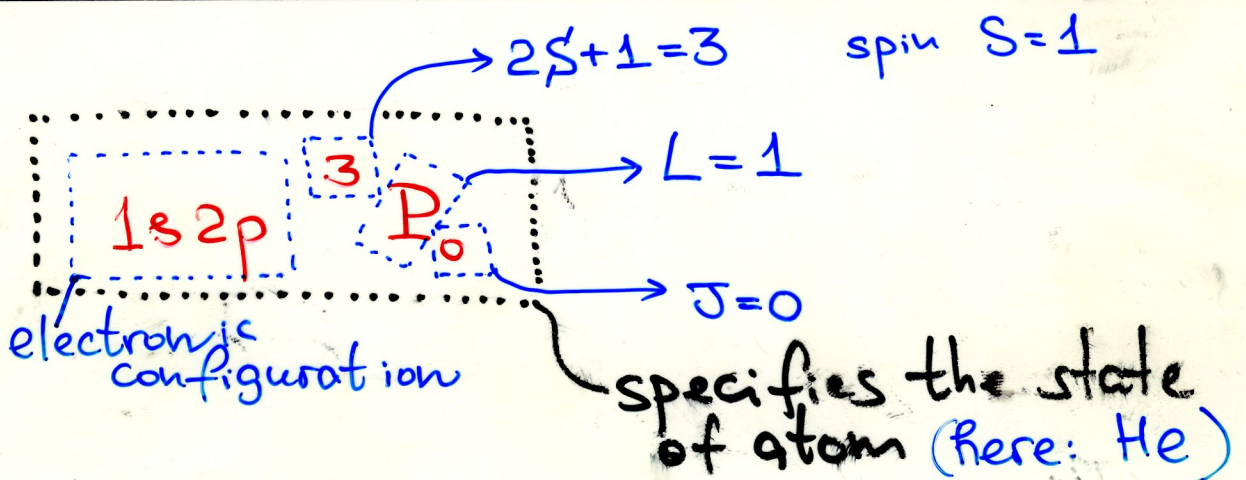 2S+1=3 spin S=1
1s2p ³P₀
L=1
J=0
electronic
configuration
specifies the state
of atom (here: He)